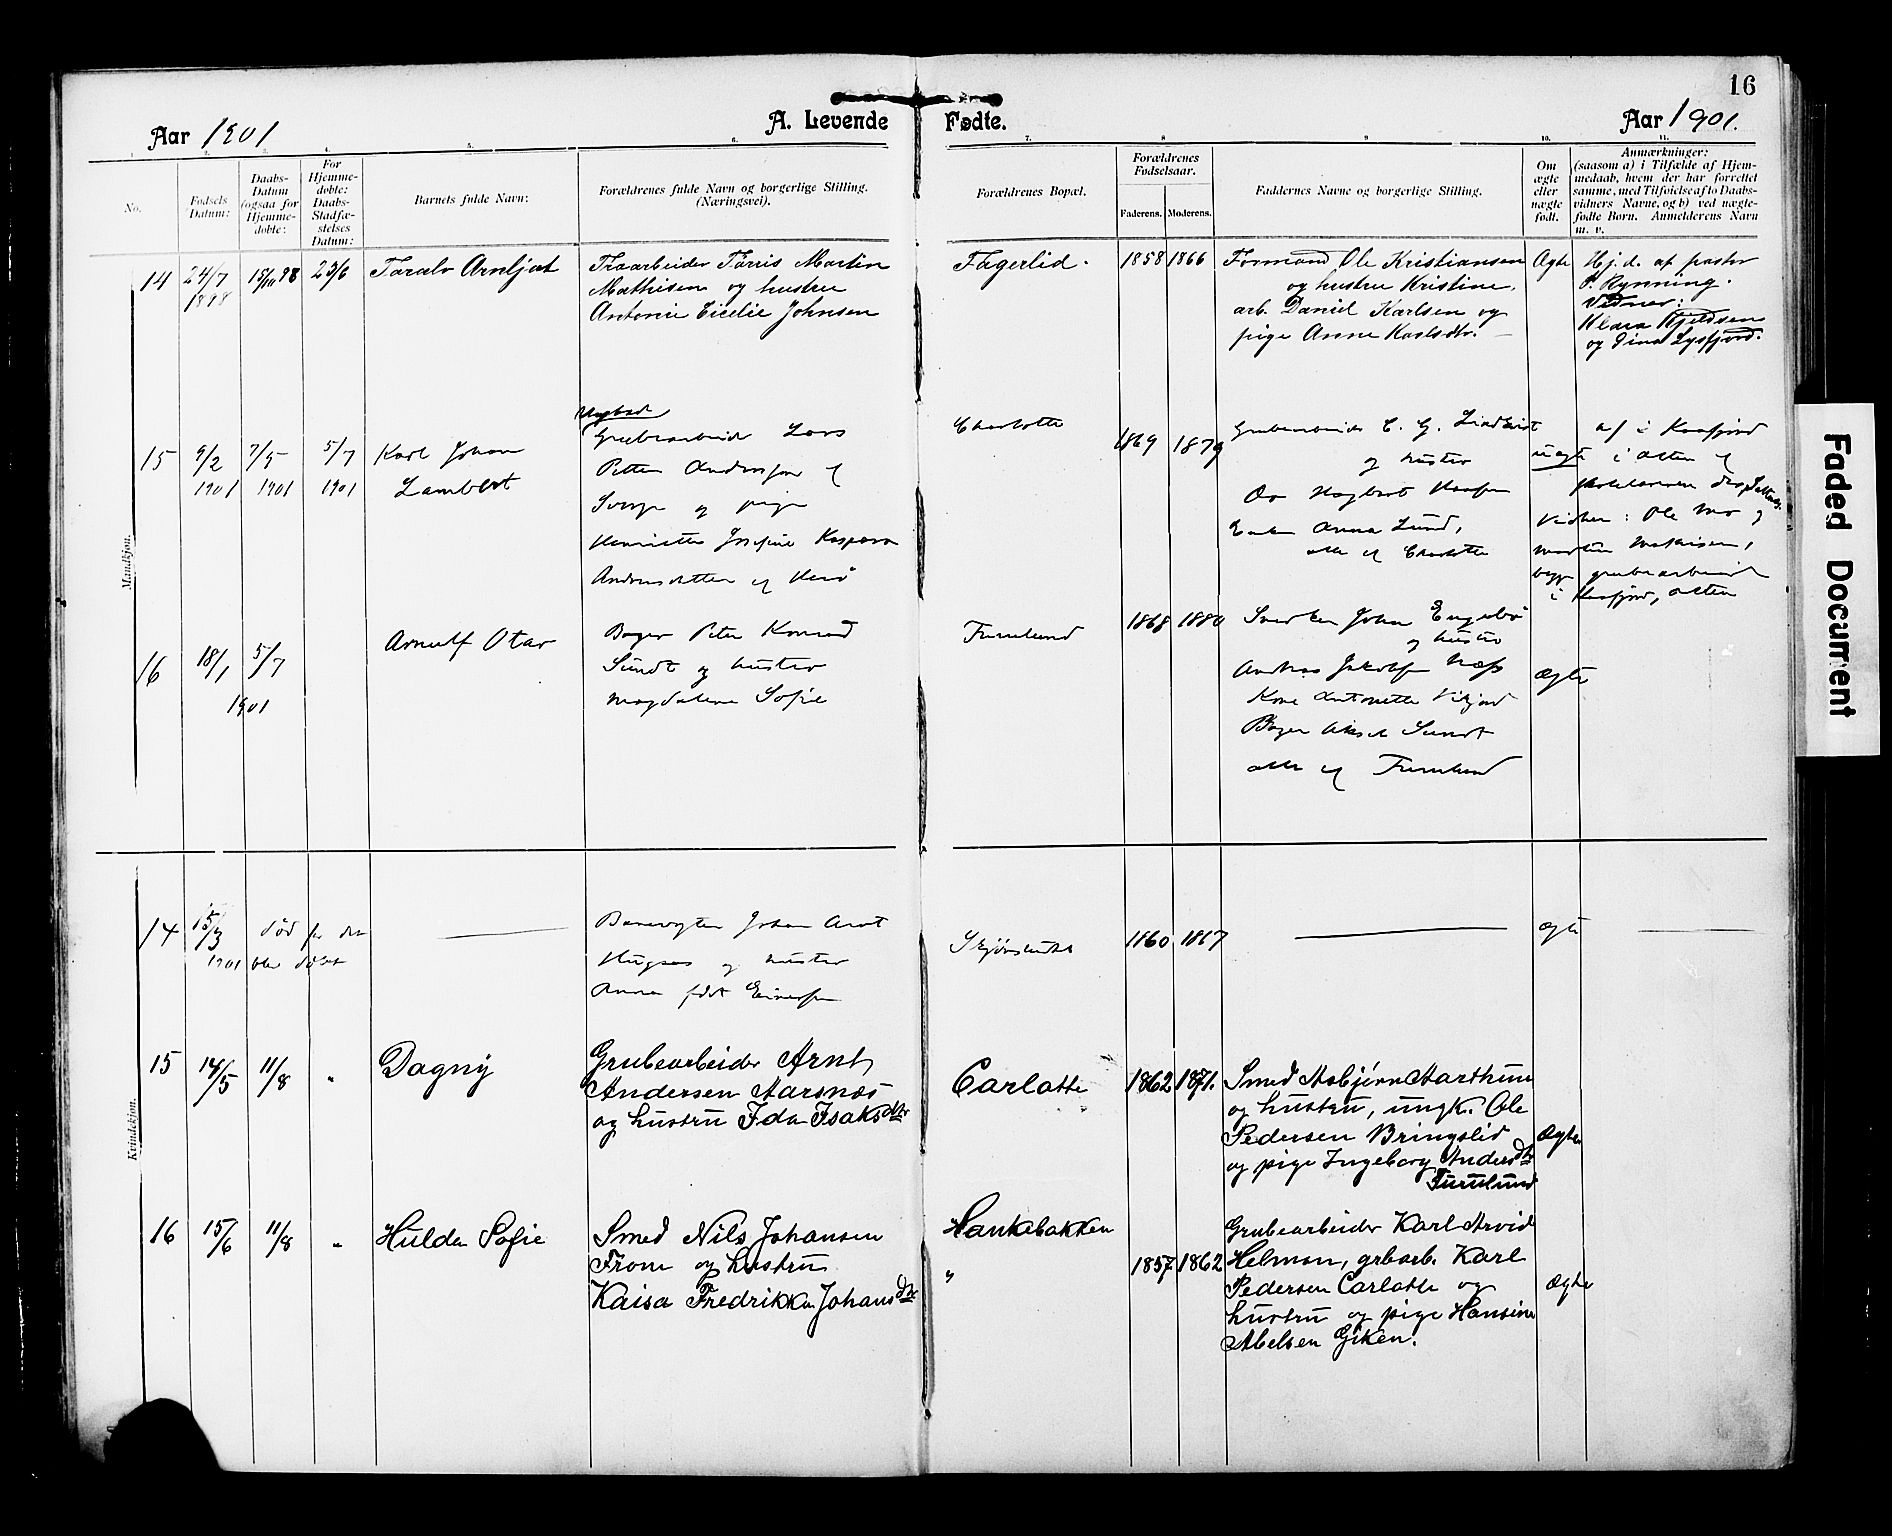 16
Aar 1901
A. Levende
Fødte.
Aar 1901.
1. 2. 3. 4. 5. 6. 7. 8. 9. 10. 11.
No.
Fødsels Datum:
Daabs-
Datum
(ogsaa for
Hjemme-
døbte:
For
Hjemme-
døbte:
Daabs-
Stadfæ-
stelses
Datum:
Barnets fulde Navn:
Forældrenes fulde Navn og borgerlige Stilling.
(Næringsvei).
Forældrenes Bopæl.
Forældrenes
Fødselsaar.
Faderens. Moderens.
Faddernes Navne og borgerlige Stilling.
Om
ægte
eller
uægte
født.
Anmærkninger:
(saasom a) i Tilfælde af Hjem-
medaab, hvem der har forrettet
samme, med Tilføielse af to Daabs-
vidners Navne, og b) ved uægte-
fødte Børn. Anmelderens Navn
m. v.
Mandkjøn.
14
24/7
1898
15/10 98
23/6
Taralv Arnljot
Traarbeider Tørris Martin
Mathisen og hustru
Antonie Cicelie Johnsen
Fagerlid.
1858 1866
Formand Ole Kristiansen
og hustru Kristine,
arb. Daniel Karlsen og
pige Anne Karlsdtr.
Ægte
Hj.d. af pastor
P. Rynning.
Vidner:
Klara Kjeldsen
og Dina Lysfjord.
15
9/2
1901
7/5
1901
5/7
1901
Karl Johan
Lambert
Ungkarl
Grubearbeider Lars
Petter Andersson af
Sverge og pige
Henriette Josefine Kaspara
Andreasdatter af Herø
Charlotte
1869 1879
Grubearbeider C. G. Lindkvist
og hustru
Hagbart Hansen
Enke Anna Lund,
alle af Charlotte
uægte
af i Kaafjord
i Alten af
Vidner: Ole Mo og
Martin Mathisen,
begge grubearbeider
i Kaafjord, Alten
16
18/1 5/7
1901
Arnulf Otar
Bager Peter Konrad
Sundt og hustru
Magdalena Sofie
Furulund
1868 1880
Snedker Johan Engebø
og hustru
Andreas Jakobsen Næss
Kone Antonette
Bager Aksel Sundt
alle af Furulund
Ægte
Kvindekjøn.
14
15/3
1901
død før den
blev døbt
Banevogter Johan Arnt
og hustru
Anna født Einersen
1860 1867
ægte
15
14/5
11/8
"
Dagny
Grubearbeider Arnt
Andersen Aarsnæs
og hustru Ida Isaksdtr
Carlotte
1862 1871.
Smed Asbjørn Aarthun
og hustru, ungk. Ole
Pedersen Bringslid
og pige Ingeborg Andersdtr
Furulund
Ægte
16
15/6
11/8
"
Hulda Sofie
Smed Nils Johansen
From og hustru
Kaisa Fredrikka Johansdtr
Hankebakken
"
1857 1862
Grubearbeider Karl Arvid
Helman, grbarb. Karl
Pedersen Carlotte og
hustru og pige Hansine
Abelsen Giken.
Ægte
Faded Document